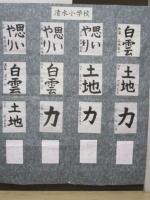 清水小学校
思いやり
思いやり
思いやり
白雲
白雲
白雲
土地
土地
土地
力
力